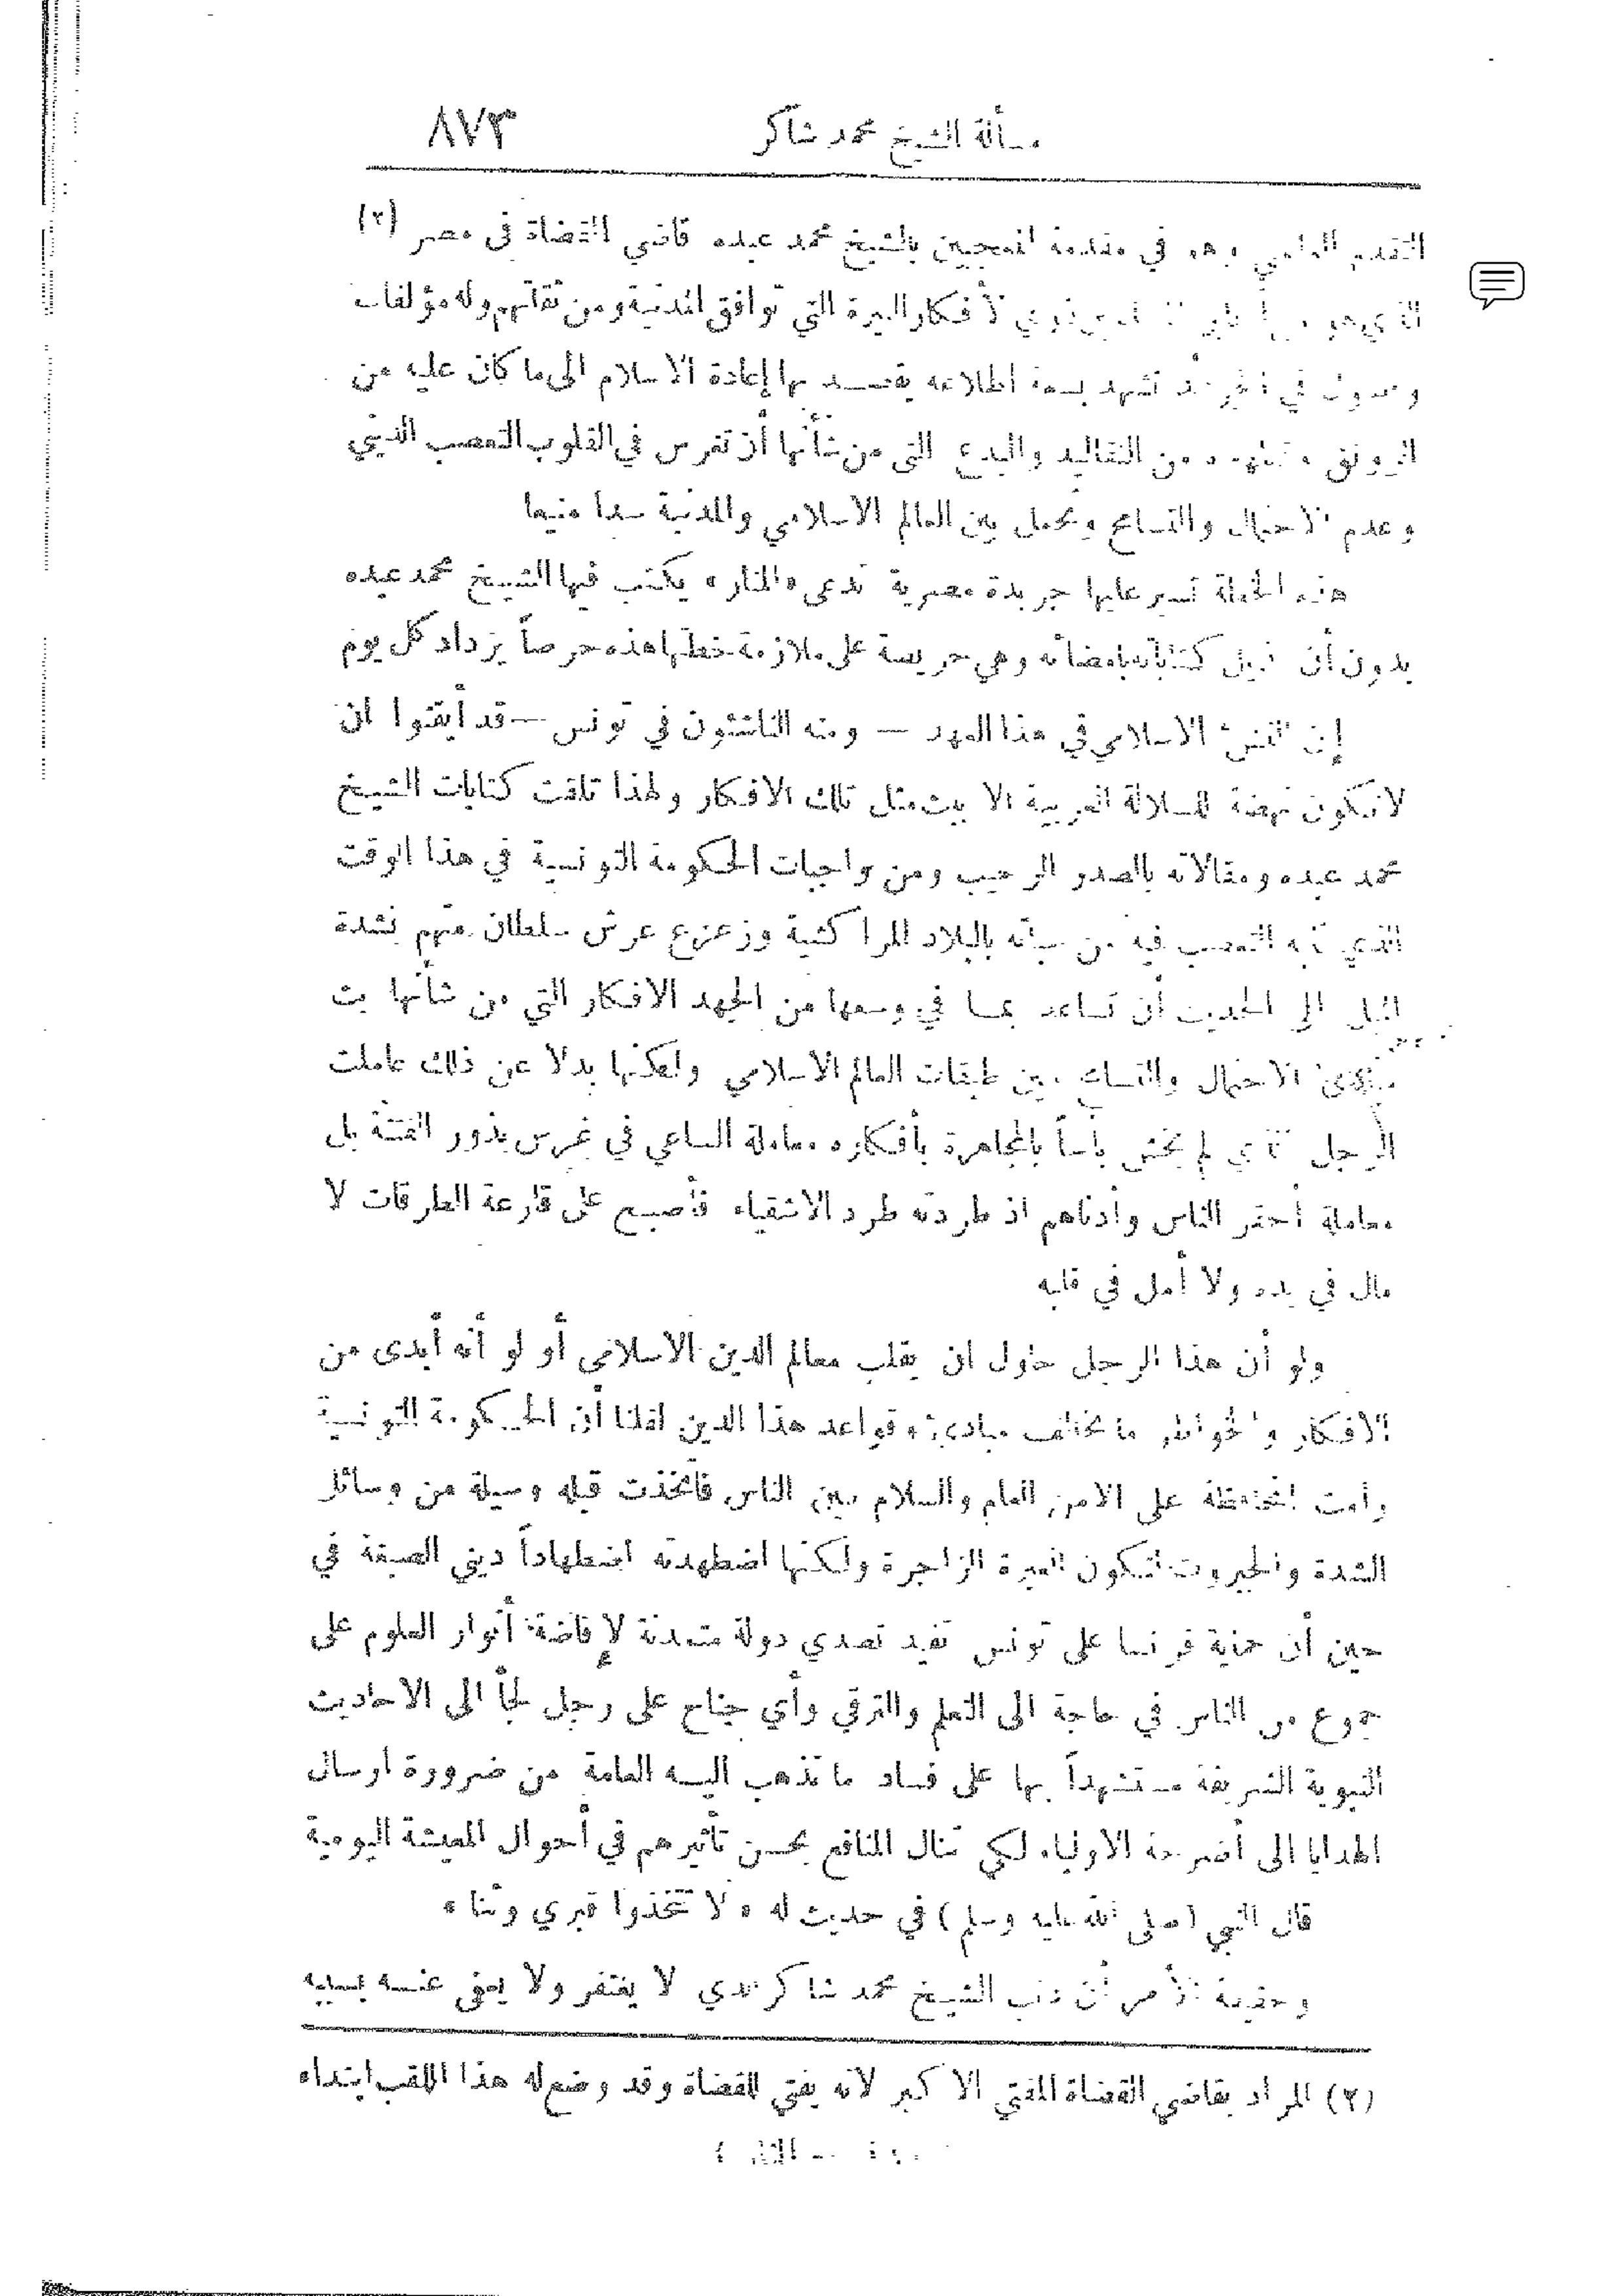 مسألة الشيخ محمد شاكر ٨٧٣
التقدم العلمي وهو في مقدمة المعجبين بالشيخ محمد عبده قاضي القضاة في مصر (٢)
الذي هو من ذوي الأفكار النيرة التي توافق المدنية ومن ثقاتهم وله مؤلفات
وفصول في الجرائد تشهد بسعة اطلاعه يقصد بها إعادة الاسلام الى ما كان عليه من
الرونق وتطهيره من التقاليد والبدع التي من شأنها أن تغرس في القلوب التعصب الديني
وعدم الاحتمال والتسامح وتجعل بين العالم الاسلامي والمدنية سداً منيعا
هذه الخطة تسير عليها جريدة مصرية تدعى «المنار» يكتب فيها الشيخ محمد عبده
بدون أن تذيل كتاباته بامضائه وهي حريصة على ملازمة خطتها هذه حرصاً يزداد كل يوم
إن النشء الاسلامي في هذا العهد — ومنه الناشئون في تونس — قد أيقنوا ان
لا تكون نهضة للسلالة العربية الا ببث مثل تلك الافكار ولهذا تلقت كتابات الشيخ
محمد عبده ومقالاته بالصدر الرحيب ومن واجبات الحكومة التونسية في هذا الوقت
الذي تنبه التعصب فيه من سباته بالبلاد المراكشية وزعزع عرش سلطان متهم بشدة
الميل الى الحديث أن تساعد بما في وسعها من الجهد الافكار التي من شأنها بث
مبادئ الاحتمال والتسامح بين طبقات العالم الاسلامي ولكنها بدلا عن ذلك عاملت
الرجل الذي لم يخش بأساً بالمجاهرة بأفكاره معاملة الساعي في غرس بذور الفتنة بل
معاملة أحقر الناس وأدناهم اذ طردته طرد الاشقياء فأصبح على قارعة الطرقات لا
مال في يده ولا أمل في قلبه
ولو أن هذا الرجل حاول ان يقلب معالم الدين الاسلامي أو لو أنه أبدى من
الافكار والخواطر ما يخالف مبادئ وقواعد هذا الدين لقلنا أن الحكومة التونسية
رامت المحافظة على الامن العام والسلام بين الناس فاتخذت قبله وسيلة من وسائل
الشدة والجبروت لتكون العبرة الزاجرة ولكنها اضطهدته اضطهاداً ديني الصبغة في
حين أن حماية فرنسا على تونس تفيد تصدي دولة متمدنة لإفاضة أنوار العلوم على
جموع من الناس في حاجة الى التعلم والترقي وأي جناح على رجل لجأ الى الاحاديث
النبوية الشريفة مستشهداً بها على فساد ما تذهب اليه العامة من ضرورة ارسال
الهدايا الى أضرحة الاولياء لكي تنال المنافع بحسن تأثيرهم في أحوال المعيشة اليومية
قال النبي (صلى الله عليه وسلم) في حديث له «لا تتخذوا قبري وثنا»
وحقيقة الأمر أن ذنب الشيخ محمد شاكر لدي لا يغتفر ولا يعفى عنه بسببه
(٢) المراد بقاضي القضاة المفتي الاكبر لانه يفتي للقضاة وقد وضع له هذا اللقب ابتداء